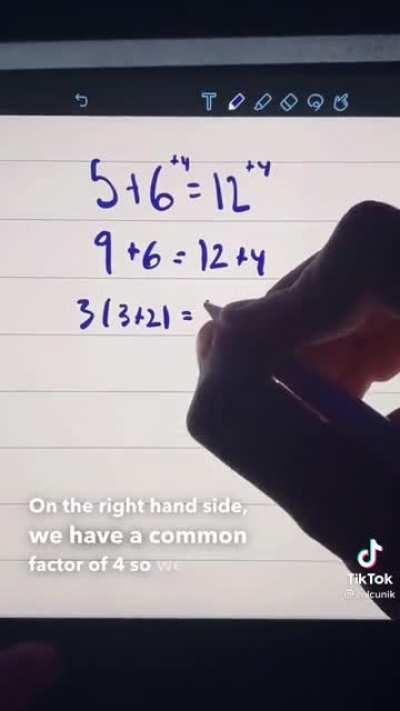 T
5+6⁺⁴=12⁺⁴
9+6=12+4
3(3+2)=
On the right hand side,
we have a common
factor of 4 so we
TikTok